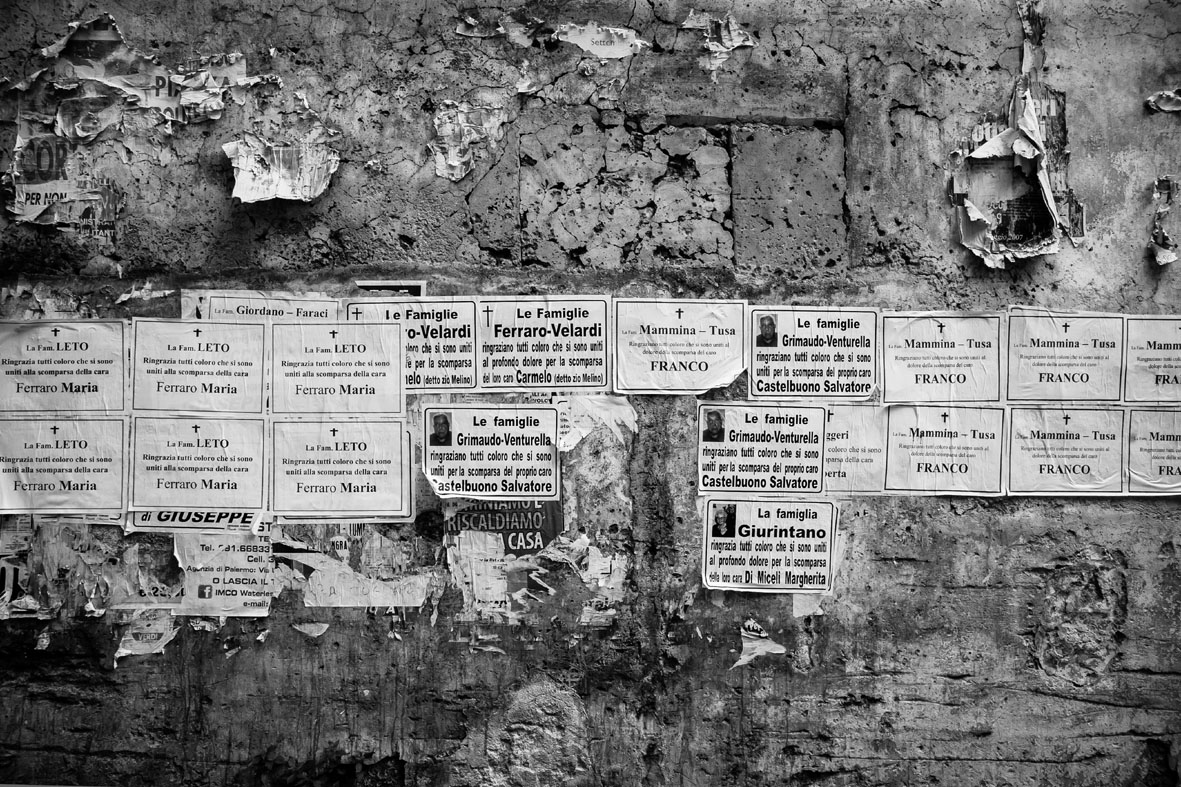 Setten
PER NON
La Fam. Giordano – Faraci
La Fam. LETO
Ringrazia tutti coloro che si sono
uniti alla scomparsa della cara
Ferraro Maria
La Fam. LETO
Ringrazia tutti coloro che si sono
uniti alla scomparsa della cara
Ferraro Maria
La Fam. LETO
Ringrazia tutti coloro che si sono
uniti alla scomparsa della cara
Ferraro Maria
Le Famiglie
ro-Velardi
loro che si sono uniti
re per la scomparsa
melo (detto zio Melino)
Le Famiglie
Ferraro-Velardi
ringraziano tutti coloro che si sono uniti
al profondo dolore per la scomparsa
del loro caro Carmelo (detto zio Melino)
La Fam. Mammina – Tusa
Ringraziano tutti coloro che si sono uniti al
dolore della scomparsa del caro
FRANCO
Le famiglie
Grimaudo-Venturella
ringraziano tutti coloro che si sono
uniti per la scomparsa del proprio caro
Castelbuono Salvatore
La Fam. Mammina – Tusa
Ringraziano tutti coloro che si sono uniti al
dolore della scomparsa del caro
FRANCO
La Fam. Mammina – Tusa
Ringraziano tutti coloro che si sono uniti al
dolore della scomparsa del caro
FRANCO
Mamm
FRA
La Fam. LETO
Ringrazia tutti coloro che si sono
uniti alla scomparsa della cara
Ferraro Maria
La Fam. LETO
Ringrazia tutti coloro che si sono
uniti alla scomparsa della cara
Ferraro Maria
La Fam. LETO
Ringrazia tutti coloro che si sono
uniti alla scomparsa della cara
Ferraro Maria
Le famiglie
Grimaudo-Venturella
ringraziano tutti coloro che si sono
uniti per la scomparsa del proprio caro
Castelbuono Salvatore
Le famiglie
Grimaudo-Venturella
ringraziano tutti coloro che si sono
uniti per la scomparsa del proprio caro
Castelbuono Salvatore
ggeri
coloro che si sono
mparsa della cara
berta
La Fam. Mammina – Tusa
Ringraziano tutti coloro che si sono uniti al
dolore della scomparsa del caro
FRANCO
La Fam. Mammina – Tusa
Ringraziano tutti coloro che si sono uniti al
dolore della scomparsa del caro
FRANCO
Mamm
FRA
di GIUSEPPE
RISCALDIAMO
CASA
La famiglia
Giurintano
ringraziano tutti coloro che si sono uniti
al profondo dolore per la scomparsa
della loro cara Di Miceli Margherita
Tel.
Cell.
Agenzia di Palermo: Via
O LASCIA IL
IMCO Waterles
e-mail:
VERDI